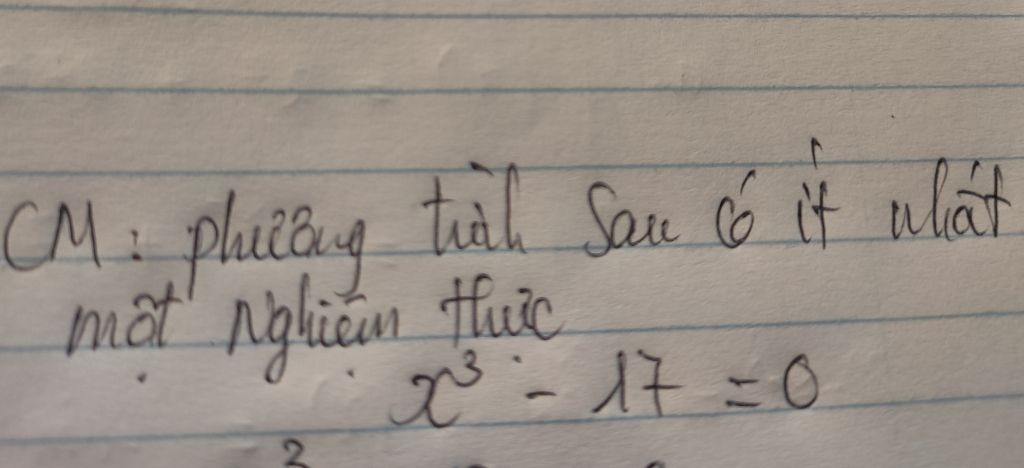 CM: phương trình sau có ít nhất
một nghiệm thực
x³ - 17 = 0